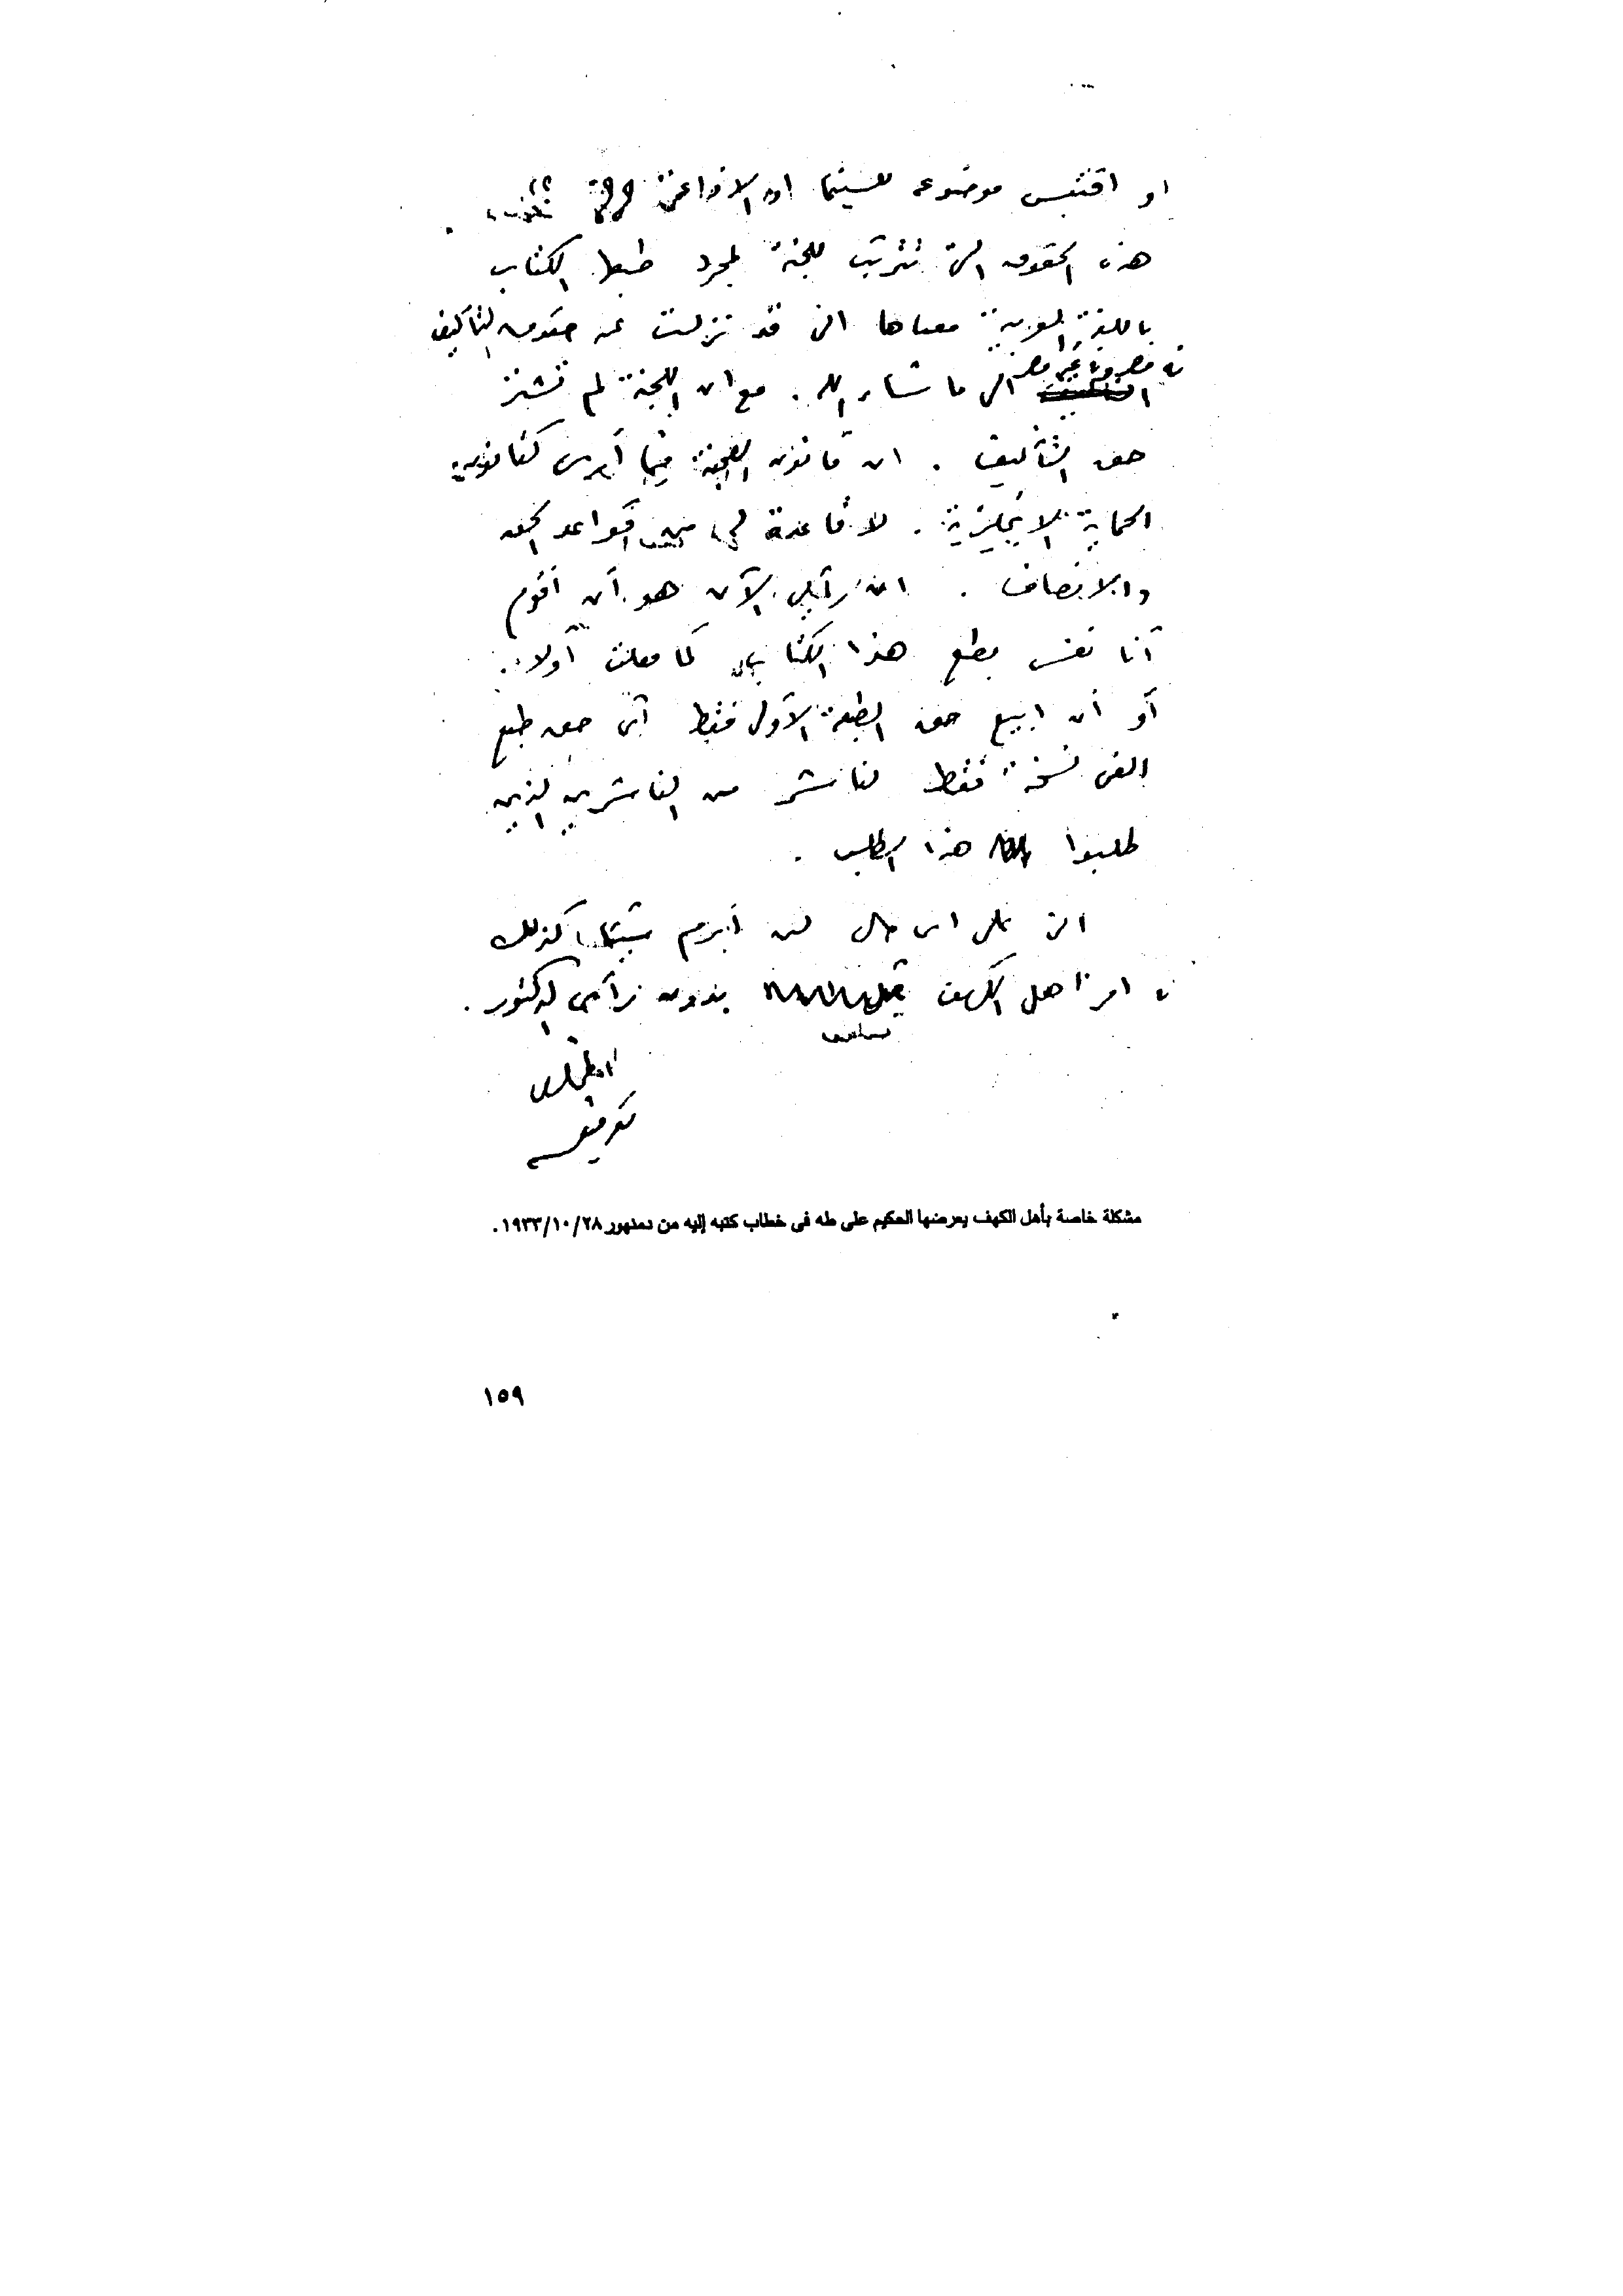 او اقتبس موضوعه للسينما او الاذاعة
هذه الحقوق التى تترتب للجنة لمجرد طبع الكتاب
باللغة العربية معناها انى قد نزلت عن حقوق التأليف
فى مصر وفى غير مصر الى ما شاء الله . مع ان اللجنة لم تشتر
حق التأليف . ان قانون اللجنة فيما أرى كقانون
الحماية الانجليزية . لا قاعدة له من قواعد الحق
والانصاف . ان رأيى الآن هو أن أقوم
أنا نفسى بطبع هذا الكتاب كما فعلت أولا .
أو أن ابيع حق الطبعة الأولى فقط أى حق طبع
الفى نسخة فقط لناشر من الناشرين الذين
طلبوا هذا الطلب .
انى على اى حال لن أبرم شيئا كذلك
فى امر اهل الكهف بدون رأى الدكتور .
المخلص
توفيق
مشكلة خاصة بأهل الكهف يعرضها الحكيم على طه فى خطاب كتبه إليه من دمنهور ١٩٣٣/١٠/٢٨ .
١٥٩